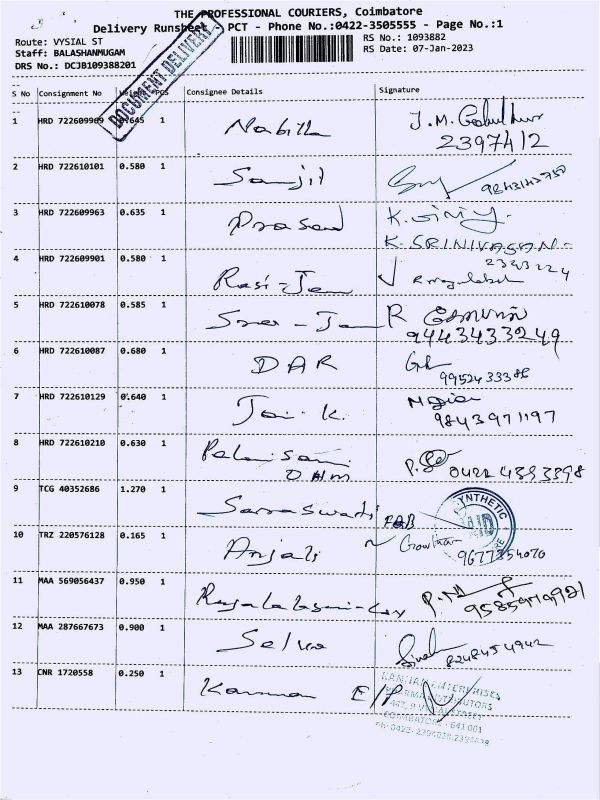 THE PROFESSIONAL COURIERS, Coimbatore
Delivery Runsheet - PCT - Phone No.:0422-3505555 - Page No.:1
Route: VYSIAL ST
Staff: BALASHANMUGAM
DRS No.: DCJB109388201
RS No.: 1093882
RS Date: 07-Jan-2023
DOCUMENT DELIVERY
S No Consignment No Weight PCS Consignee Details Signature
1 HRD 722609969 0.645 1 Nabilla J.M.
2397412
2 HRD 722610101 0.580 1 Sanjil
3 HRD 722609963 0.635 1 Prasad
K. SRINIVASAN
4 HRD 722609901 0.580 1 Rasi-Jem
2343224
5 HRD 722610078 0.585 1 R
9443433249
6 HRD 722610087 0.680 1 DAR
9952433386
7 HRD 722610129 0.640 1 Jai. K.
9843971197
8 HRD 722610210 0.630 1 Palanisami
0422 4393398
9 TCG 40352686 1.270 1 Saraswathi
SYNTHETIC
10 TRZ 220576128 0.165 1 Anjali
9677354070
11 MAA 569056437 0.950 1 Rajalakshmi-Lux
9585979921
12 MAA 287667673 0.900 1 Selva
8248454942
13 CNR 1720558 0.250 1 Kannan E/P
KANNAN ENTERPRISES
PHARMA DISTRIBUTORS
COIMBATORE - 641 001